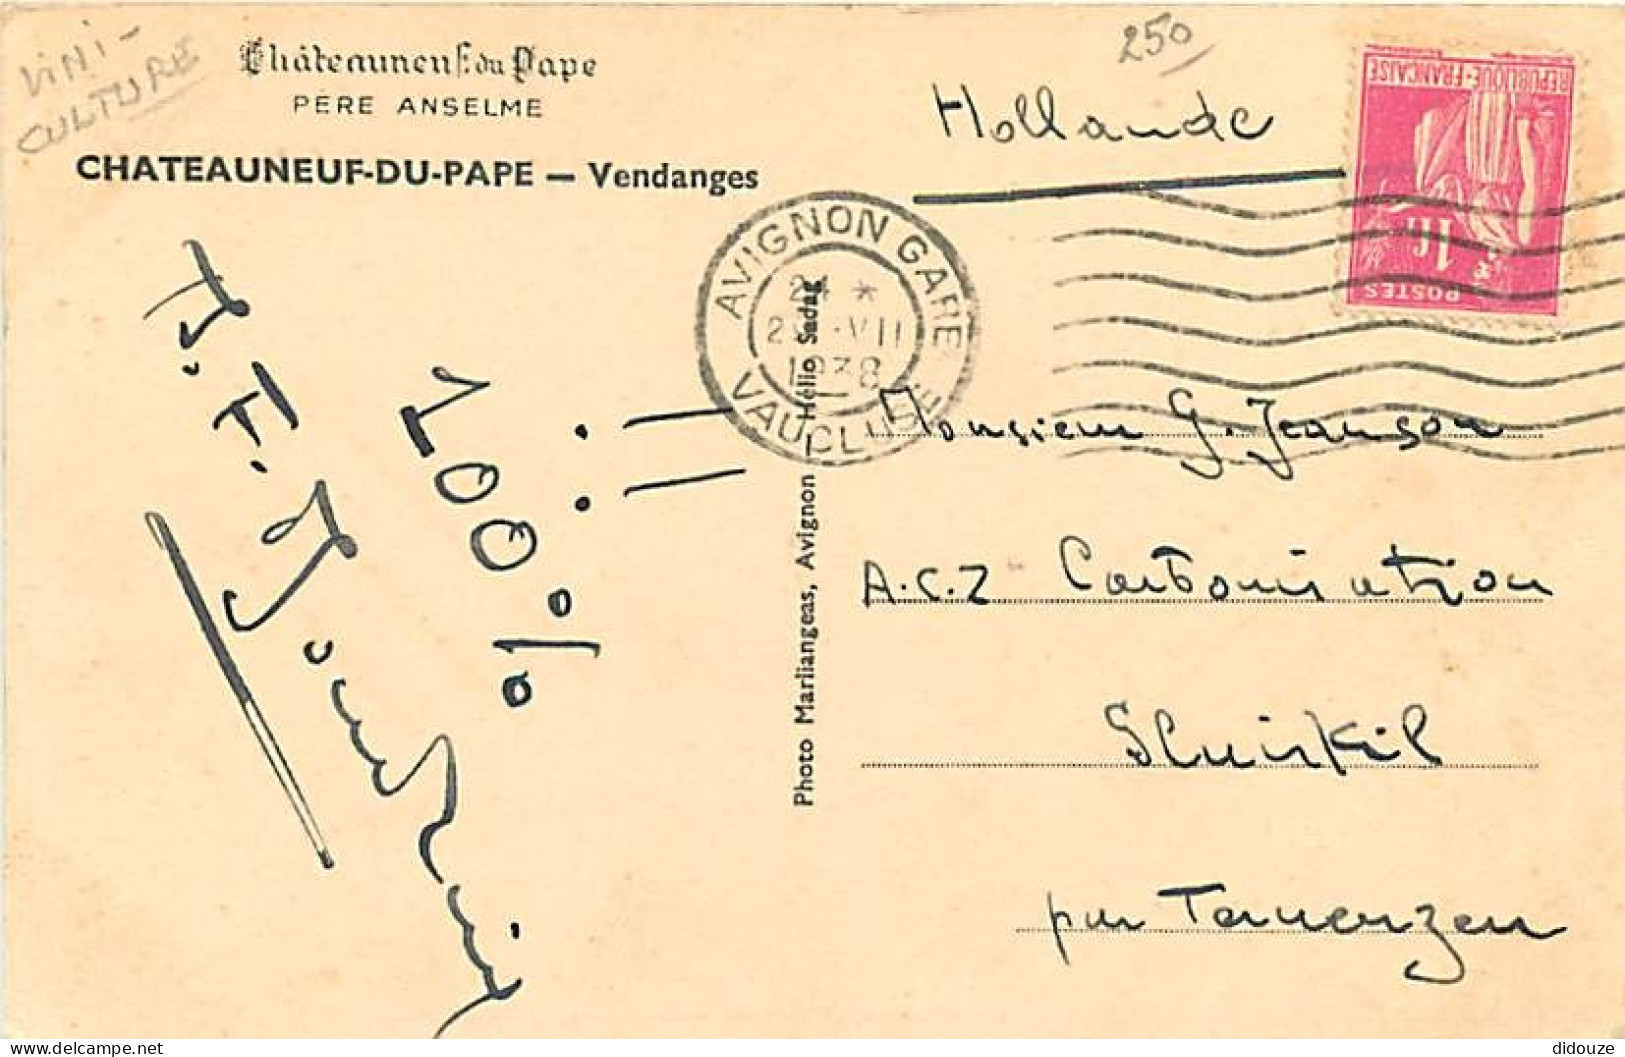 VINI-
CULTURE
Châteauneuf du Pape
PÈRE ANSELME
CHATEAUNEUF-DU-PAPE — Vendanges
250
Hollande
REPUBLIQUE-FRANÇAISE
1fr
POSTES
AVIGNON GARE
24 *
VII
1938
VAUCLUSE
100%
Photo Mariiangeas, Avignon — Hélio Sadag
Monsieur G. Jeanson
A.C.Z Carbonisation
Sluiskil
par Terneuzen
didouze